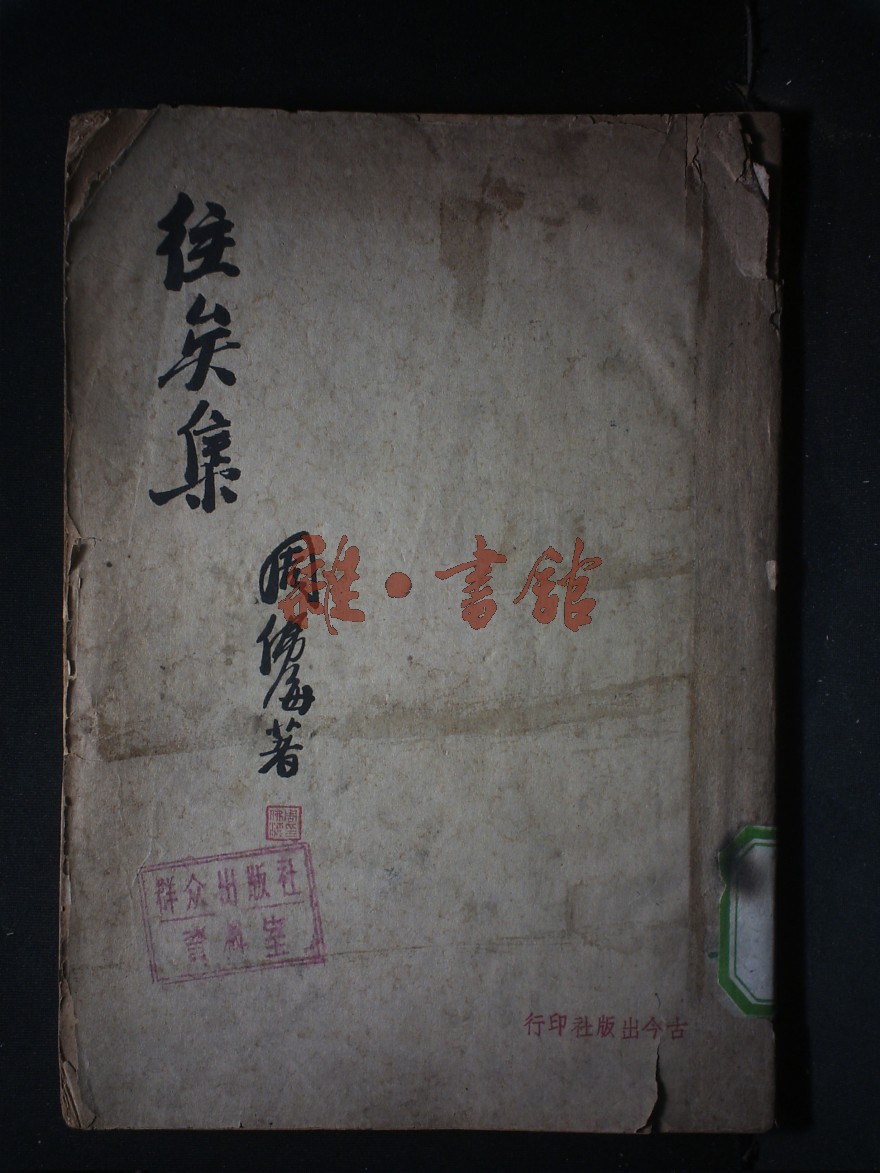 往矣集
周佛海著
雜·書館
群众出版社
資料室
古今出版社印行